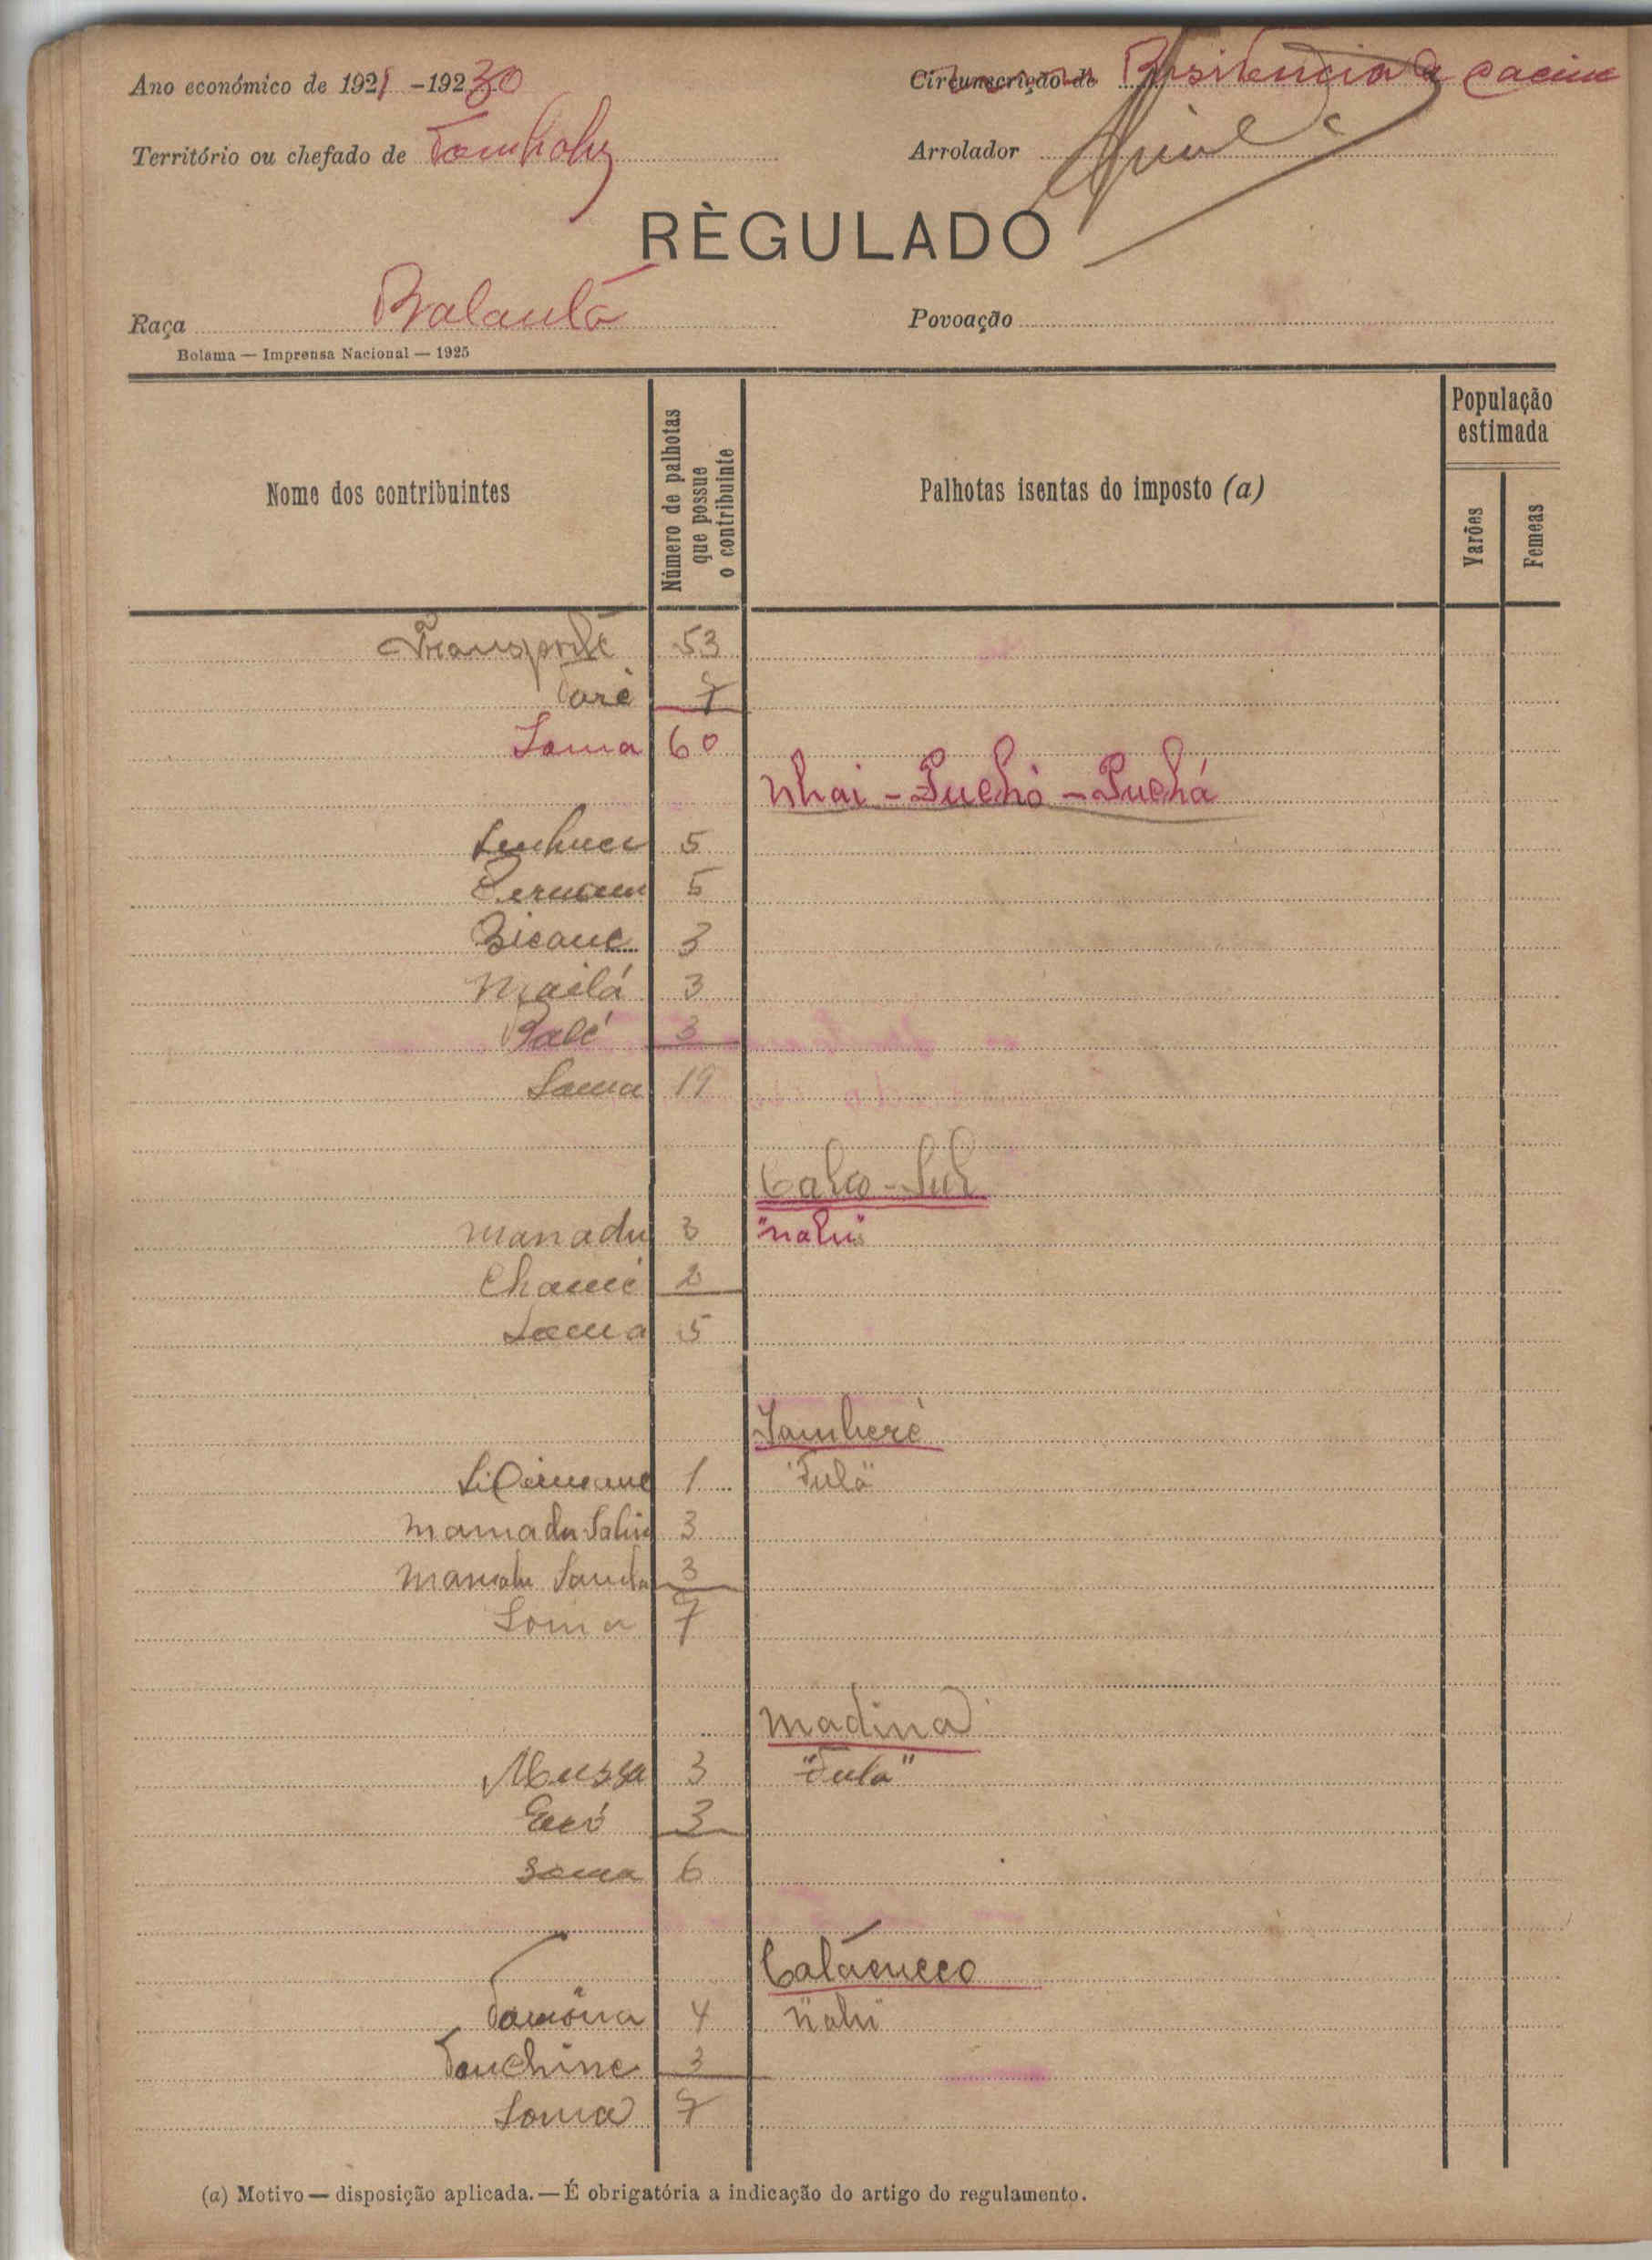 Ano económico de 1921 - 19230 Circunscrição de Residencia de Cacine
Território ou chefado de Arrolador
RÈGULADO
Raça Balanta Povoação
Bolama — Imprensa Nacional — 1925
Nome dos contribuintes
Número de palhotas que possue o contribuinte
Palhotas isentas do imposto (a)
População estimada
Varões
Femeas
Transporte 53
Taré 7
Soma 60
Nhai - Fuchó - Puchá
5
5
Bicane 3
Mailá 3
Balé 3
Soma 19
Calco - Sul
Manadu 3 "nalu"
Chamé 2
Soma 5
Jamberé
1 "Fula"
Mamadu Saliu 3
Mamadu Samba 3
Soma 7
Madina
Mussa 3 "Fula"
3
Soma 6
4 "nalu"
Tanchine 3
Soma 7
(a) Motivo — disposição aplicada. — É obrigatória a indicação do artigo do regulamento.